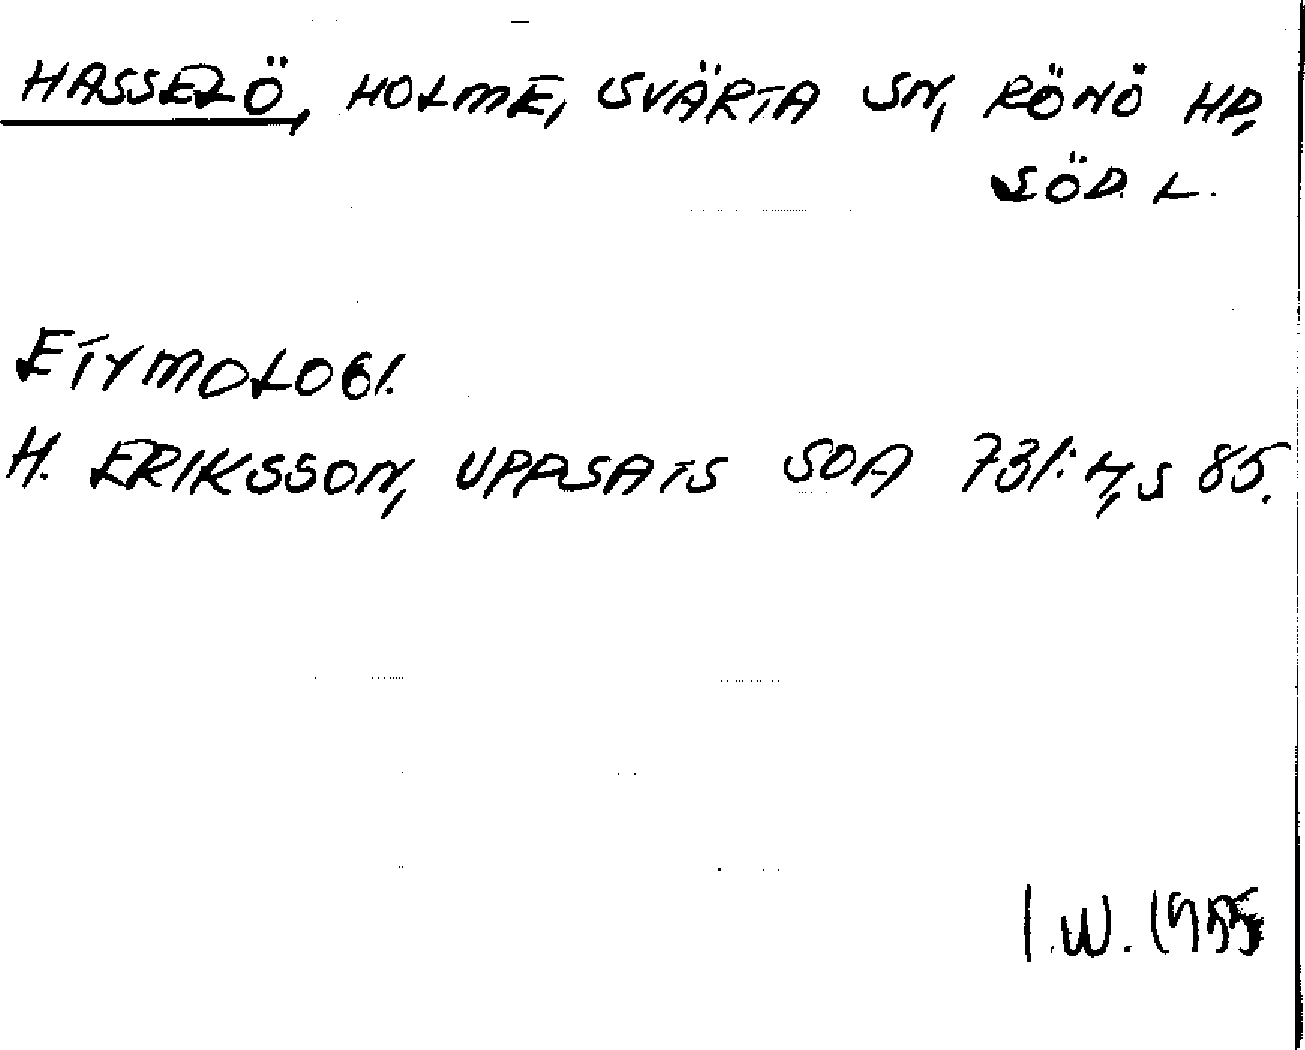 HASSELÖ, HOLME, SVÄRTA SN, RÖNÖ HD,
SÖD. L.
ETYMOLOGI.
H. ERIKSSON, UPPSATS SOA 731:4, S 85.
I.W.